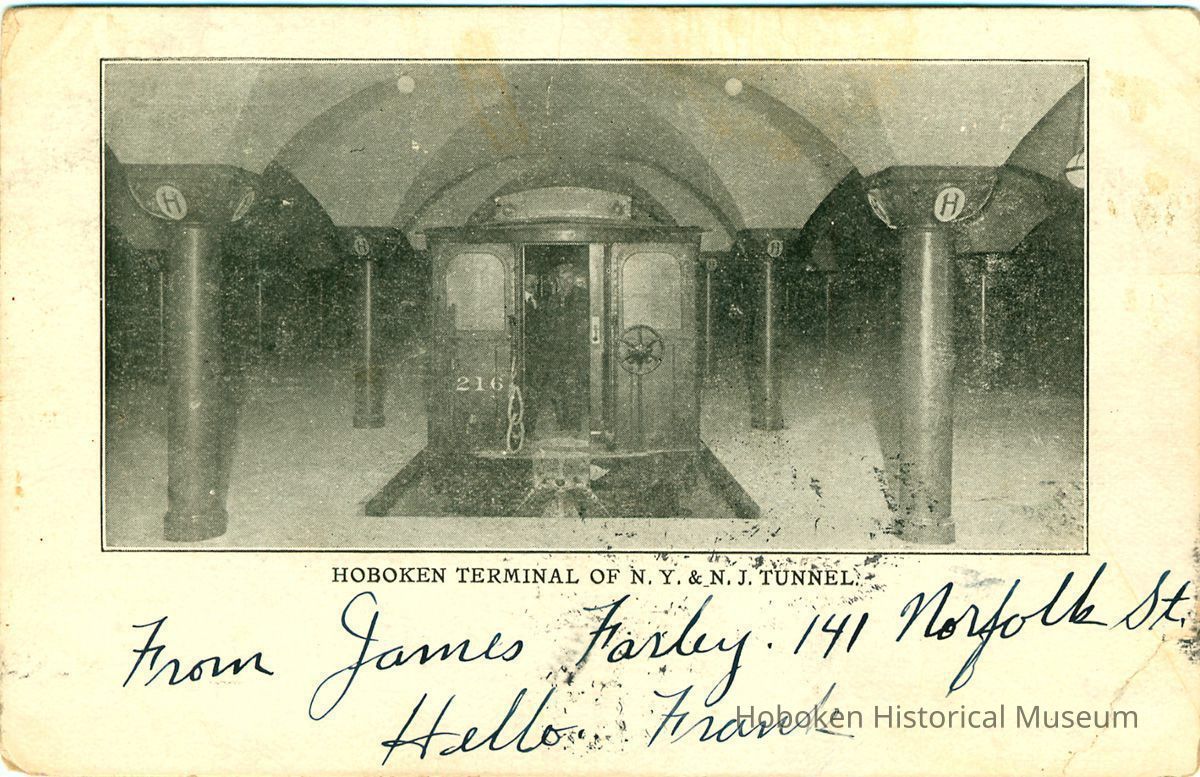 H H H H
216
HOBOKEN TERMINAL OF N. Y. & N. J. TUNNEL.
From James Farley. 141 Norfolk St.
Hello. Frank
Hoboken Historical Museum